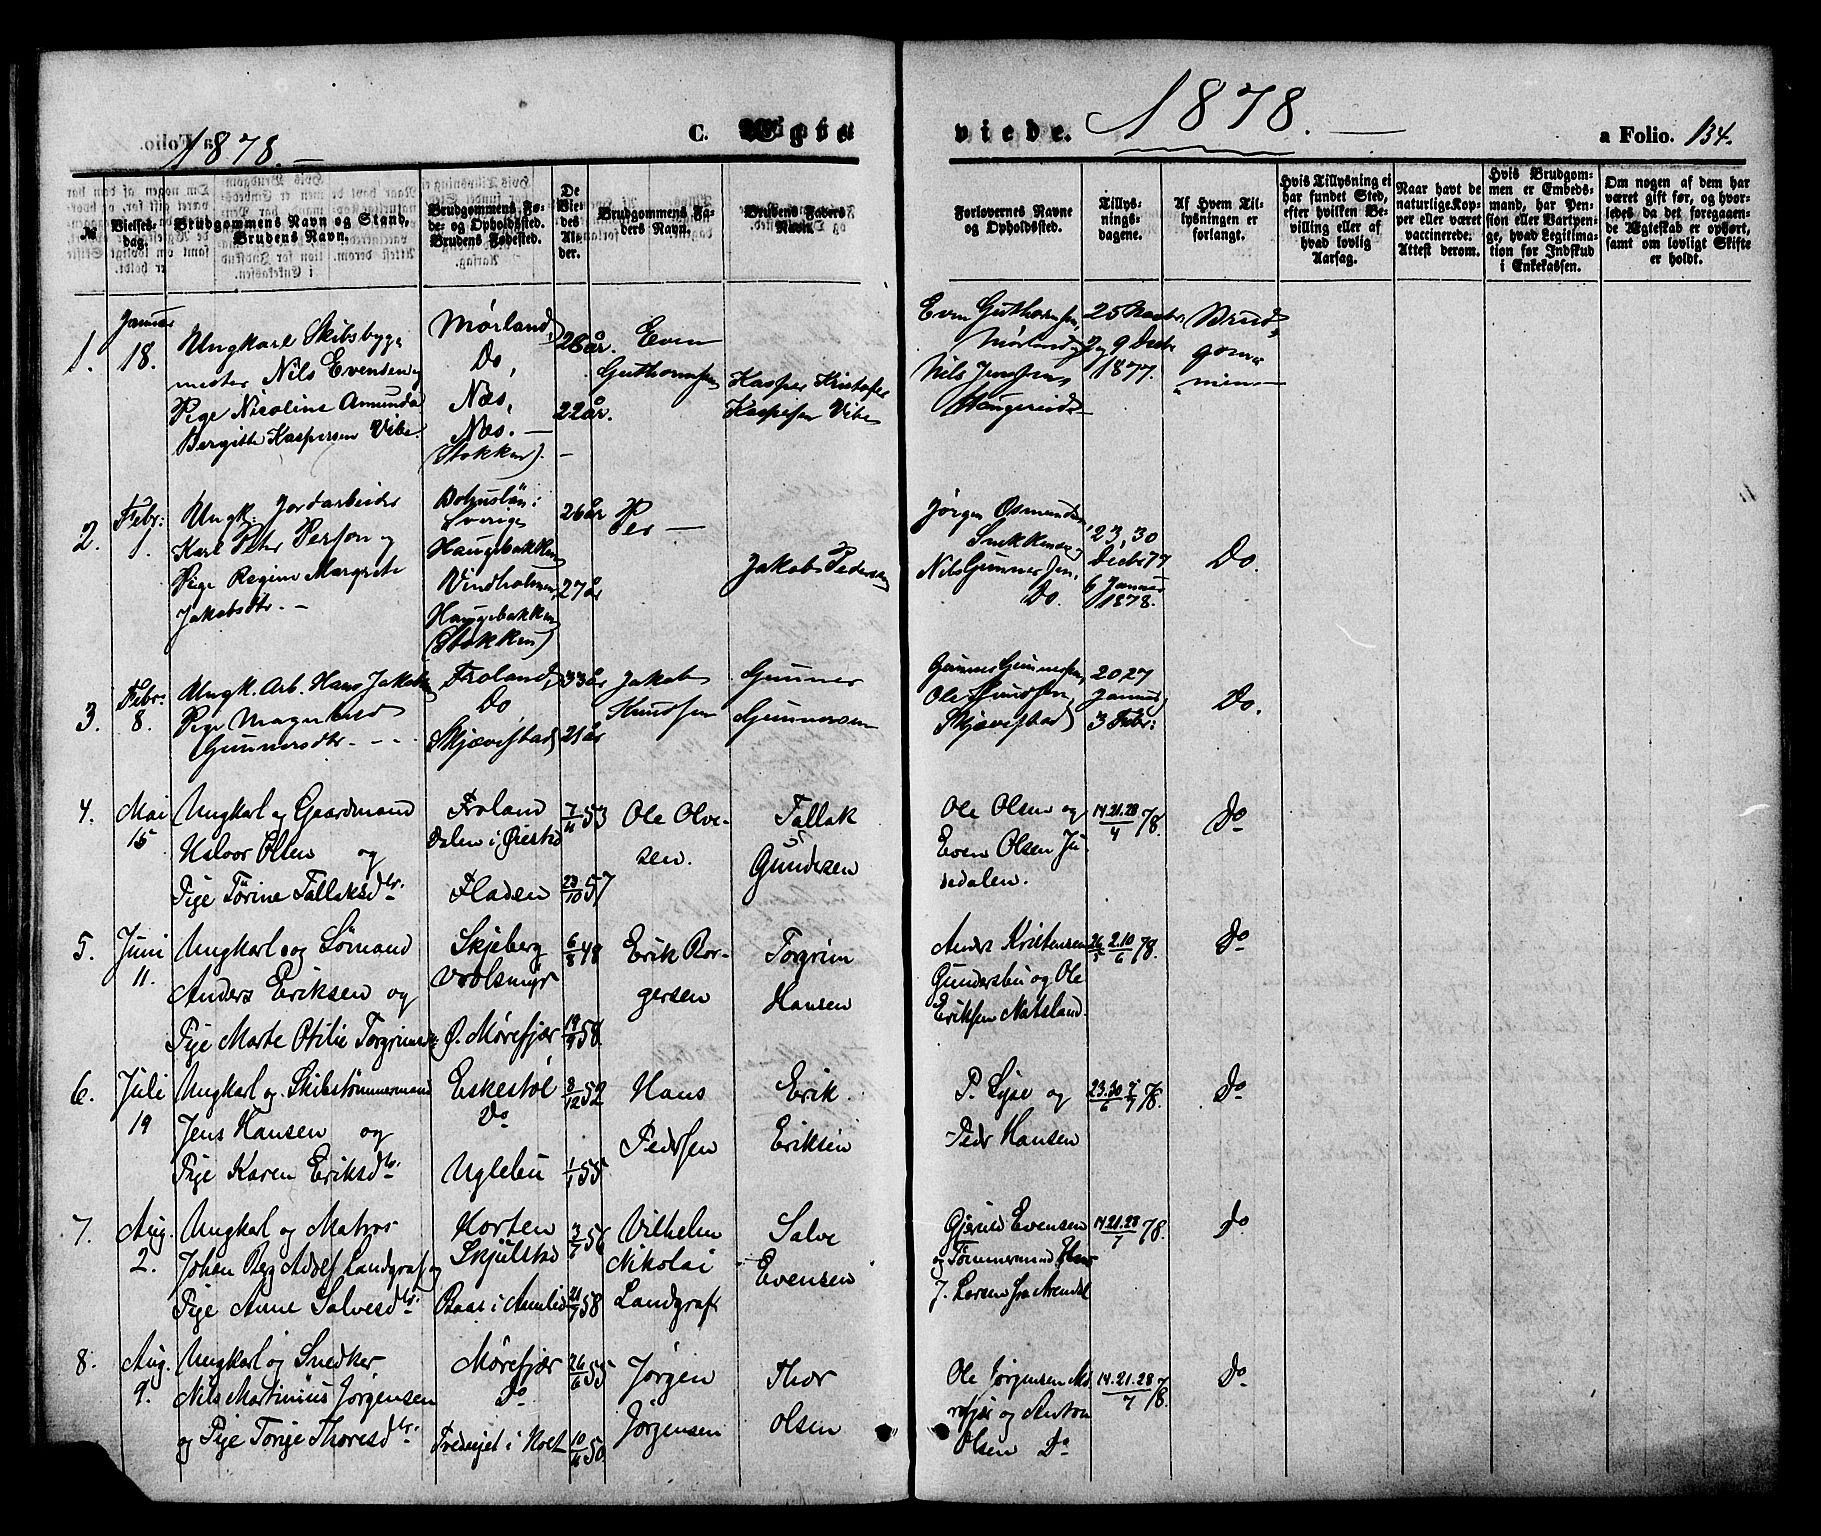 1878. —
C. Ægte
viede.
1878. —
a Folio. 134.
№
Vielses-
dag.
Brudgommens Navn og Stand,
Brudens Navn.
Brudgommens Fø-
de- og Opholdssted.
Brudens Fødested.
De
Vie-
des
Al-
der.
Brudgommens Fa-
ders Navn.
Brudens Faders
Navn.
Forlovernes Navne
og Opholdssted.
Tillys-
nings-
dagene.
Af Hvem Til-
lysningen er
forlangt.
Hvis Tillysning ei
har fundet Sted,
efter hvilken Be-
villing eller af
hvad lovlig
Aarsag.
Naar havt de
naturlige Kop-
per eller været
vaccinerede.
Attest derom.
Hvis Brudgom-
men er Embeds-
mand, har Pen-
sion eller Vartpen-
ge, hvad Legitima-
tion før Indskud
i Enkekassen.
Om nogen af dem har
været gift før, og hvor-
ledes da det foregaaen-
de Ægteskab er ophørt,
samt om lovligt Skifte
er holdt.
1.
Januar
18.
Ungkarl Skibsbyg-
mester Nils Evensen og
Pige Nicoline Amunda
Bergitte Kaspersen Vibe.
Mørland
Do,
Næs,
Næs. —
(Stokken).
28 år.
22 år.
Even
Guthormsen
Kasper Kristofer
Kaspersen Vibe
Even Guthormsen,
Mørland og
Nils Jensen
Haugereid
25 Novbr.
2 og 9 Decbr
1877.
Brud-
gom-
men
2.
Febr:
1.
Ungk. Jordarbeider
Karl Peter Person og
Pige Regine Margrete
Jakobsdtr. —
Bohuslän i
Sverige
Haugebakken
Vindholmen,
Haugebakken
(Stokken)
26 år
27 år
Per —
Jakob Pedersen
Jørgen Osmundsen
Snekkenes og
Nils Gunnersen.
Do.
23, 30
Decbr 77
6 Januar
1878.
Do.
3.
Febr:
8.
Ungk. Arb. Hans Jakobsen
Pige Magnhild
Gunnersdtr. - - -
Froland,
Do
Skjævestad
33 år
21 år
Jakob
Knudsen
Gunner
Gunnersen
Gunner Gunnersen,
Ole Knudsen,
Skjævestad
20, 27
Januar,
3 Febr:
Do.
4.
Mai
15
Ungkarl og Gaardmand
Halvor Olsen og
Pige Tørine Tallaksdtr.
Froland
Dalen i Øiestad
Fladen
7/11 53
23/10 57
Ole Olve-
sen.
Tallak
Gundersen
Ole Olsen og
Even Olsen Ju-
dedalen.
14.21.28/4 78.
Do
5.
Juni
11.
Ungkarl og Sømand
Anders Eriksen og
Pige Marte Otilie Torgrimsd.
Skjeberg
Vrolsmyr
Ø. Mørefjær
6/8 48
19/9 58.
Erik Bor-
gersen
Torgrim
Hansen
Anders Kristensen
Gundersbu og Ole
Eriksen Natsland.
26/5 2.10/6 78.
Do
6.
Juli
19
Ungkarl og Skibstømmermand
Jens Hansen og
Pige Karen Eriksdtr.
Eskestøl
Do
Uglebu
3/12 52
1/1 55
Hans
Pedersen
Erik
Eriksen
P. Lyse og
Peder Hansen
23.30/6 7/7 78.
Do
7.
Aug.
2.
Ungkarl og Matros
Johan Berg Adolf Landgraf og
Pige Anne Salvesdtr.
Horten
Skjulestad
Baas i Aamli
2/7 56
21/7 58
Vilhelm
Nikolai
Landgraf
Salve
Evensen
Gjeruld Evensen
og Tømmermand Hans
J. Larsen fra Arendal
14.21.28/7 78.
Do
8.
Aug.
9.
Ungkarl og Snedker
Nils Martinius Jørgensen
og Pige Tonje Thoresdtr.
Mørefjær
Do
Tveinjet i Holt
26/6 55
10/11 50
Jørgen
Jørgensen
Thor
Olsen
Ole Jørgensen Mø-
refjær og Anton
Olsen Do
14.21.28/7 78.
Do